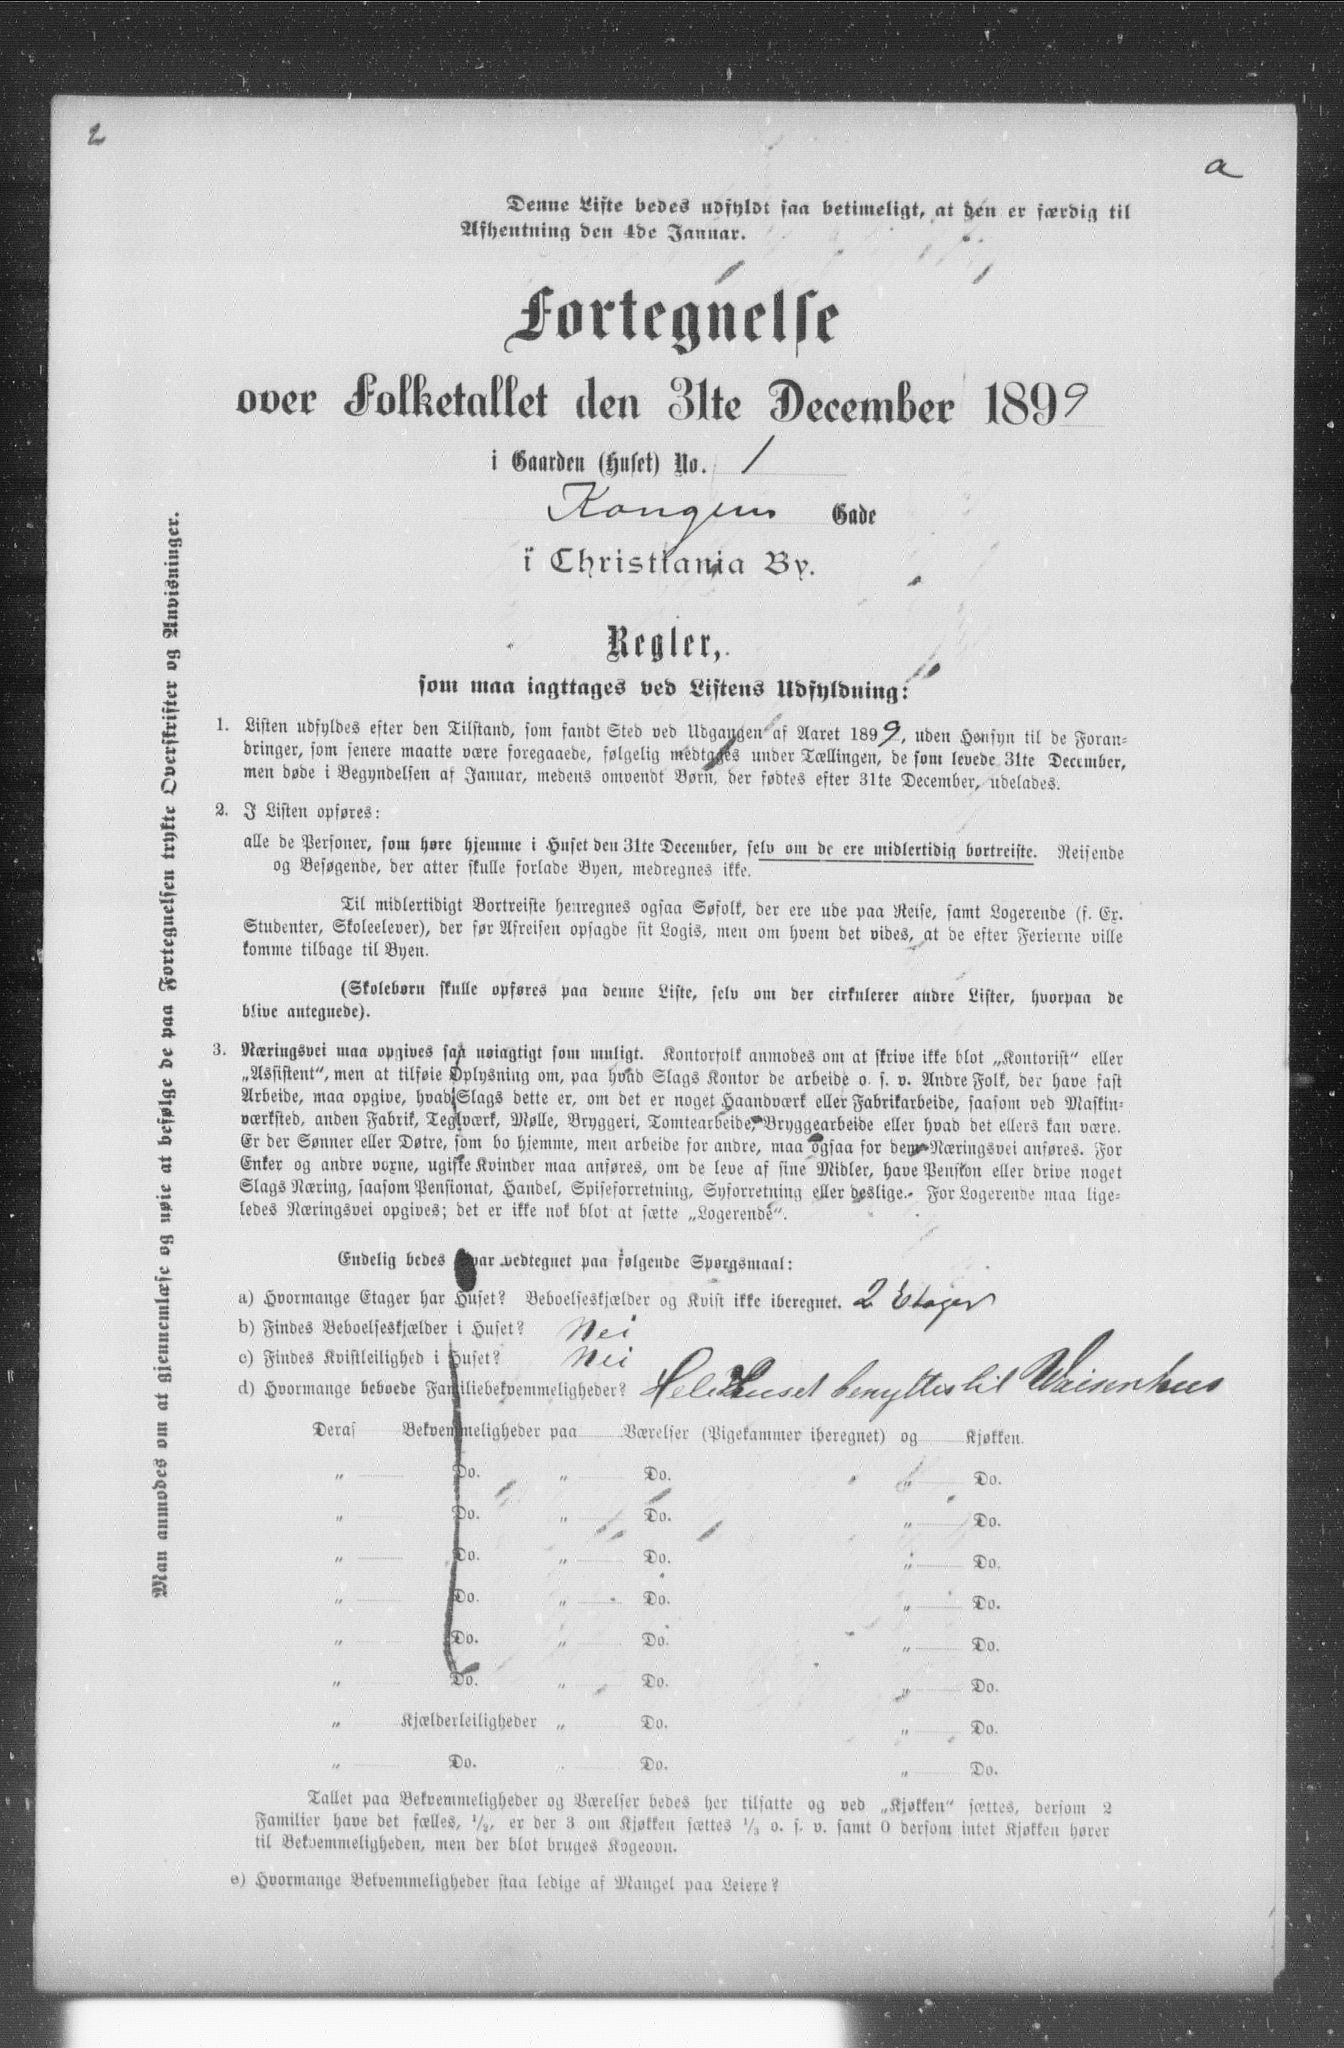 2
a
Denne Liste bedes udfyldt saa betimeligt, at den er færdig til
Afhentning den 4de Januar.
Fortegnelse
over Folketallet den 31te December 1899
i Gaarden (Huset) No. 1
Kongens Gade
i Christiania By.
Regler,
som maa iagttages ved Listens Udfyldning:
1. Listen udfyldes efter den Tilstand, som fandt Sted ved Udgangen af Aaret 1899, uden Hensyn til de Foran-
dringer, som senere maatte være foregaaede, følgelig medtages under Tællingen, de som levede 31te December,
men døde i Begyndelsen af Januar, medens omvendt Børn, der fødtes efter 31te December, udelades.
2. I Listen opføres:
alle de Personer, som høre hjemme i Huset den 31te December, selv om de ere midlertidig bortreiste. Reisende
og Besøgende, der atter skulle forlade Byen, medregnes ikke.
Til midlertidigt Bortreiste henregnes ogsaa Søfolk, der ere ude paa Reise, samt Logerende (f. Ex.
Studenter, Skoleelever), der før Afreisen opsagde sit Logis, men om hvem det vides, at de efter Ferierne ville
komme tilbage til Byen.
(Skolebørn skulle opføres paa denne Liste, selv om der cirkulerer andre Lister, hvorpaa de
blive antegnede).
3. Næringsvei maa opgives saa nøiagtigt som muligt. Kontorfolk anmodes om at skrive ikke blot „Kontorist“ eller
„Assistent“, men at tilføie Oplysning om, paa hvad Slags Kontor de arbeide o. s. v. Andre Folk, der have fast
Arbeide, maa opgive, hvad Slags dette er, om det er noget Haandværk eller Fabrikarbeide, saasom ved Maskin-
værksted, anden Fabrik, Teglværk, Mølle, Bryggeri, Tomtearbeide, Bryggearbeide eller hvad det ellers kan være.
Er der Sønner eller Døtre, som bo hjemme, men arbeide for andre, maa ogsaa for dem Næringsvei anføres. For
Enker og andre voxne, ugifte Kvinder maa anføres, om de leve af sine Midler, have Pension eller drive noget
Slags Næring, saasom Pensionat, Handel, Spiseforretning, Syforretning eller deslige. For Logerende maa lige-
ledes Næringsvei opgives; det er ikke nok blot at sætte „Logerende“.
Endelig bedes Svar vedtegnet paa følgende Spørgsmaal:
a) Hvormange Etager har Huset? Beboelseskjælder og Kvist ikke iberegnet. 2 Etager
b) Findes Beboelseskjælder i Huset? Nei
c) Findes Kvistleilighed i Huset? Nei
d) Hvormange beboede Familiebekvemmeligheder? Hele Huset benyttes til Waisenhus
Deraf Bekvemmeligheder paa Værelser (Pigekammer iberegnet) og Kjøkken.
„ Do. „ Do. „ Do.
„ Do. „ Do. „ Do.
„ Do. „ Do. „ Do.
„ Do. „ Do. „ Do.
„ Do. „ Do. „ Do.
„ Do. „ Do. „ Do.
„ Kjælderleiligheder „ Do. „ Do.
„ Do. „ Do. „ Do.
Tallet paa Bekvemmeligheder og Værelser bedes her tilsatte og ved „Kjøkken“ sættes, dersom 2
Familier have det fælles, 1/2, er der 3 om Kjøkken sættes 1/3 o. s. v. samt 0 dersom intet Kjøkken hører
til Bekvemmeligheden, men der blot bruges Kogeovn.
e) Hvormange Bekvemmeligheder staa ledige af Mangel paa Leiere?
Man anmodes om at gjennemlæse og nøie at befølge de paa Fortegnelsen trykte Overskrifter og Anvisninger.